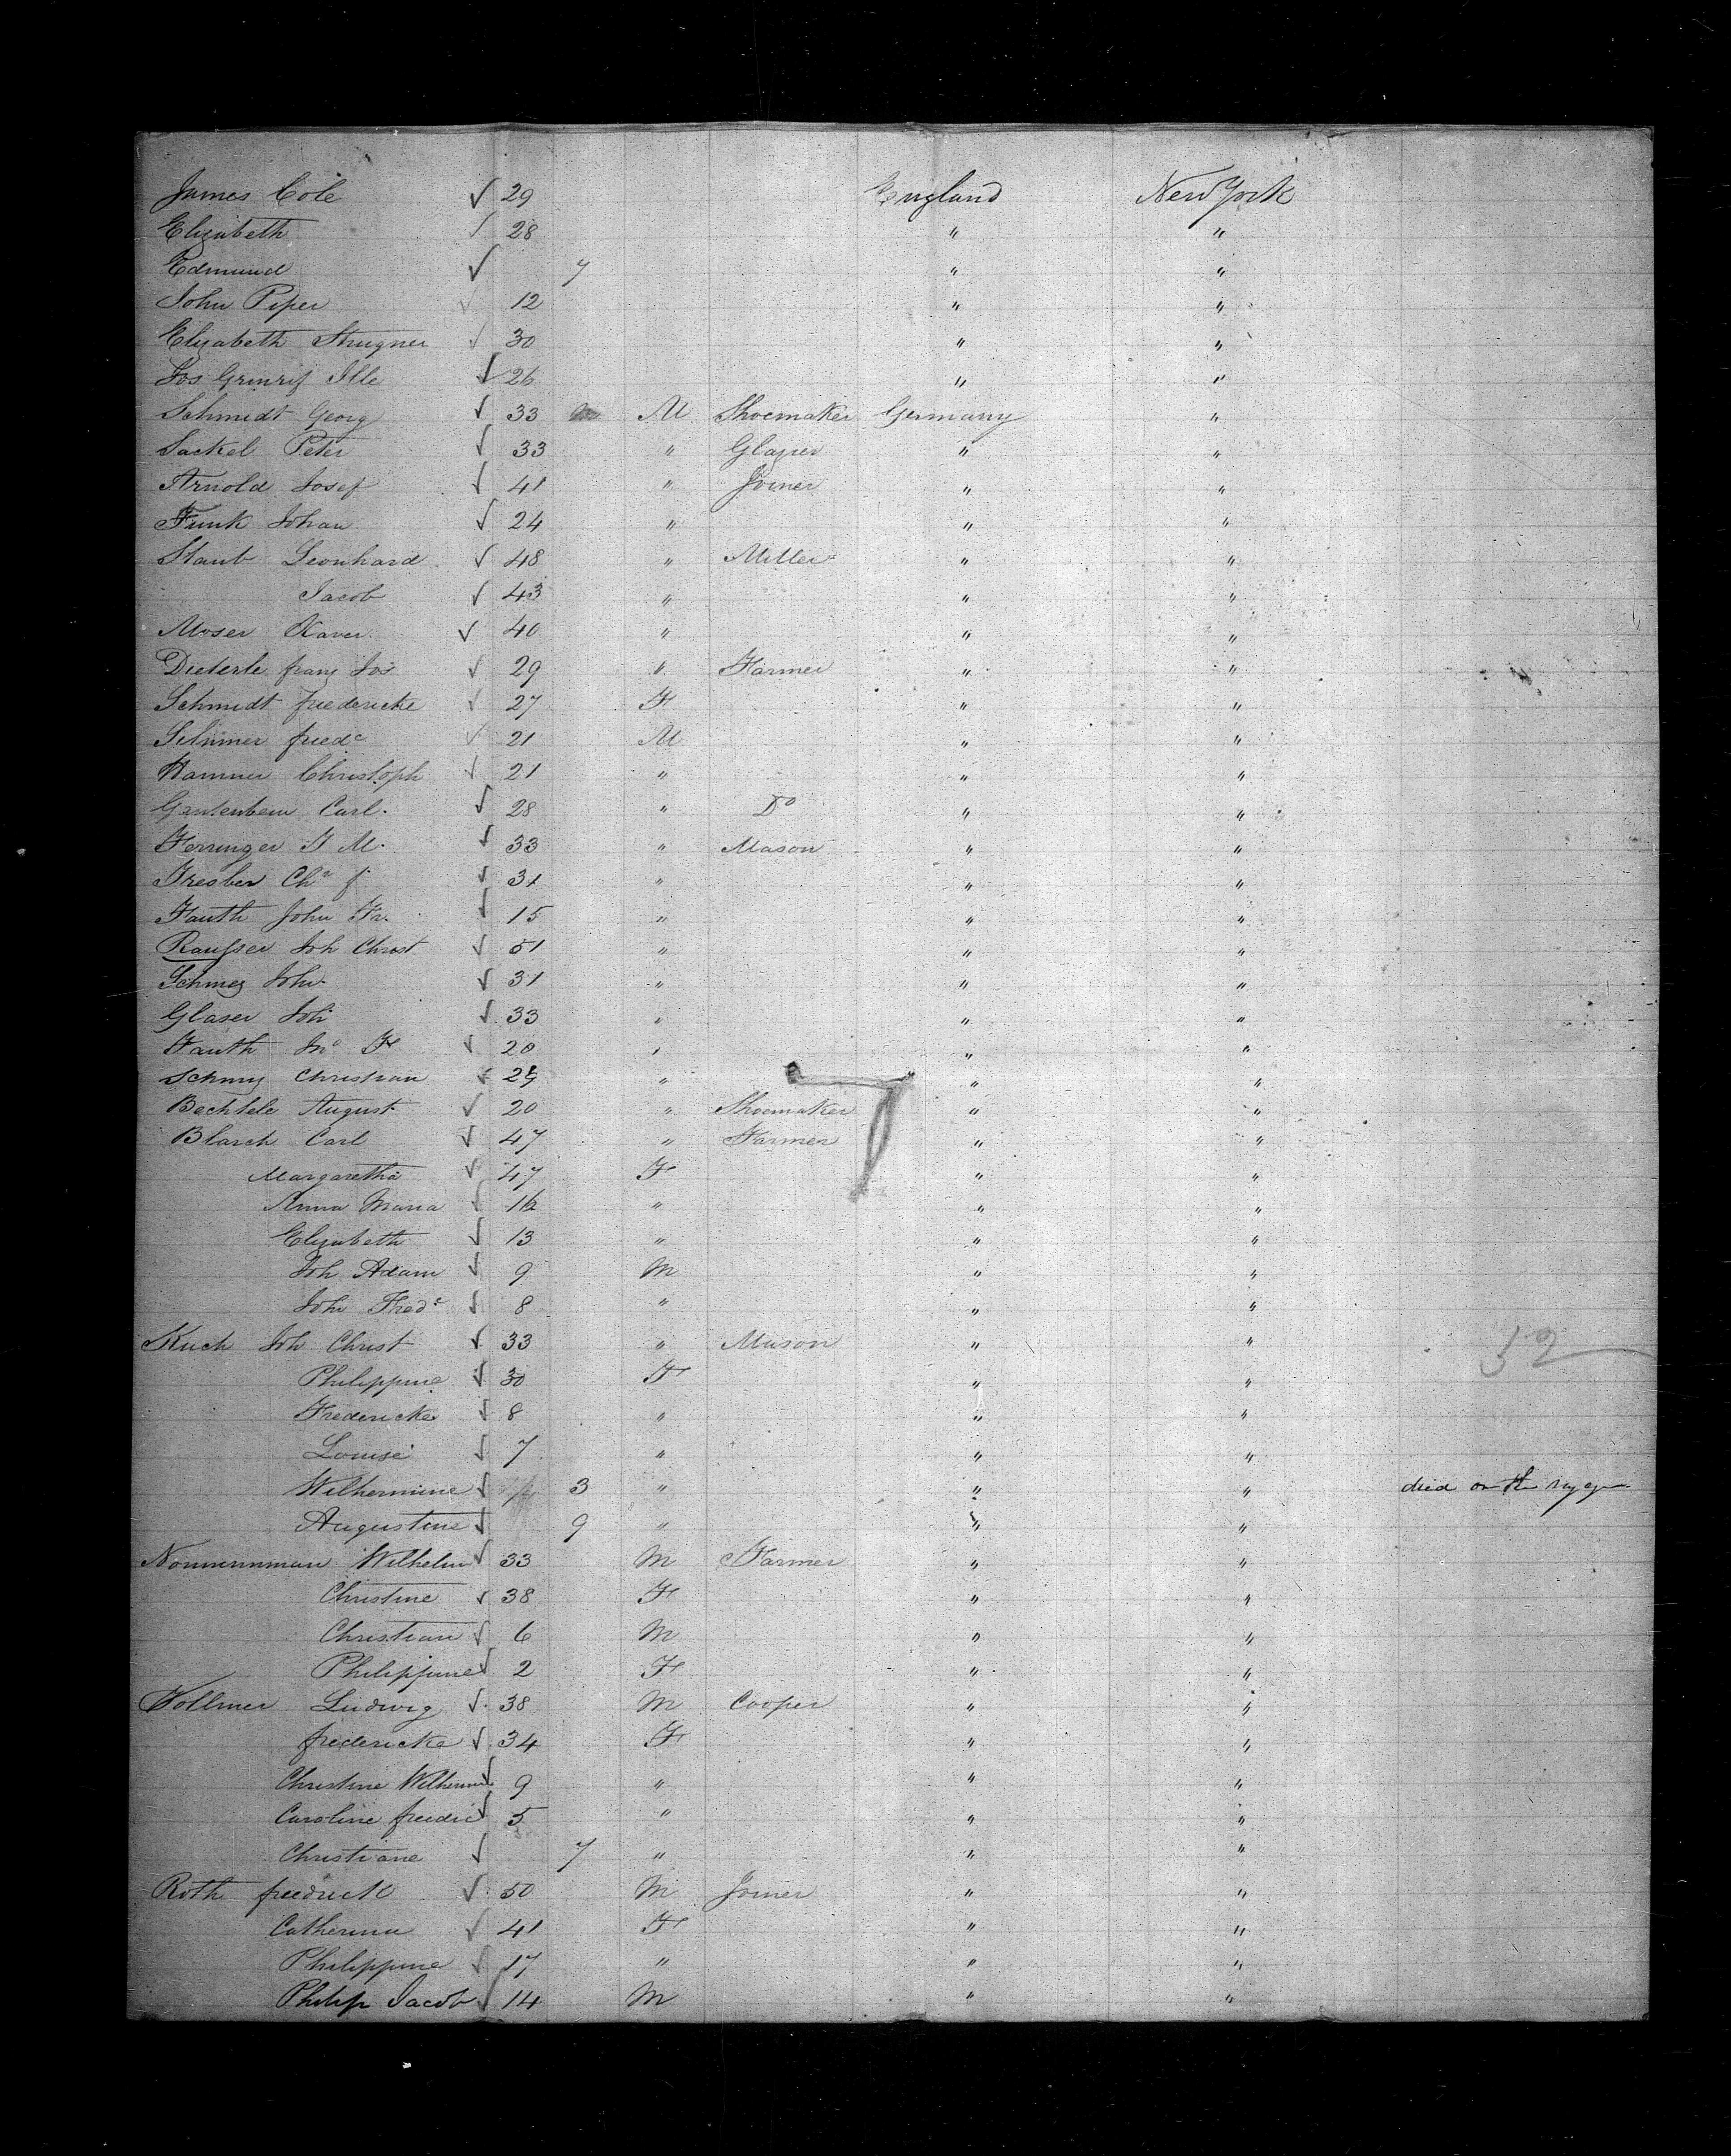 James Cole √ 29 England New York
Elizabeth √ 28 " "
Edmund √ 7 " "
John Piper √ 12 " "
Elizabeth √ 30 " "
Jos √ 26 " "
Schmidt Georg √ 33 M Shoemaker Germany "
Sackel Peter √ 33 " Glazier " "
Arnold Josef √ 41 " Joiner " "
Funk Johan √ 24 " " "
Staub Leonhard √ 48 " Miller " "
Jacob √ 43 " " "
Moser Xaver √ 40 " " "
Dieterle franz Jos √ 29 " Farmer " "
Schmidt friedericke √ 27 F " "
friedc √ 21 M " "
Christoph √ 21 " " "
Gantenbein Carl √ 28 " Do " "
Ferringer J M. √ 33 " Mason " "
Chn f √ 31 " " "
Fauth John Fr. √ 15 " " "
Rausser Joh Christ √ 51 " " "
Schmez John √ 31 " " "
Glaser Joh √ 33 " " "
Fauth Jno Fr √ 20 " " "
Christian √ " " "
Bechtele August √ 20 " Shoemaker " "
Blarch Carl √ 47 " Farmer " "
Margaretha √ 47 F " "
Anna Maria √ 16 " " "
Elizabeth √ 13 " " "
Joh Adam √ 9 M " "
Joh Fredc √ 8 " " "
Kuch Joh Christ √ 33 " Mason " " 52
Philippine √ 30 F " "
Fredericke √ 8 " " "
Louise √ 7 " " "
Wilhermine √ 3 " " " died on the
Augustine √ 9 " " "
Nonnenman Wilhelm √ 33 M Farmer " "
Christine √ 38 F " "
Christian √ 6 M " "
Philippine √ 2 F " "
Vollmer Ludwig √ 38 M Cooper " "
fredericke √ 34 F " "
Christine Wilhermine √ 9 " " "
Caroline friedric √ 5 " " "
Christiane √ 7 " " "
Roth friedrick √ 50 M Joiner " "
Catherina √ 41 F " "
Philippine √ 17 " " "
Philip Jacob √ 14 M " "